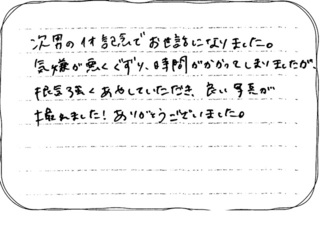 次男の1才記念でお世話になりました。
気嫌が悪くぐずり、時間がかかってしまいましたが、
根気強くあやしていただき、良い写真が
撮れました！ありがとうございました。